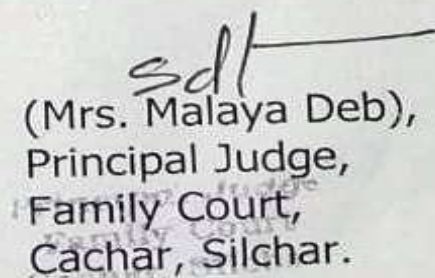 Sd/-
(Mrs. Malaya Deb),
Principal Judge,
Family Court,
Cachar, Silchar.